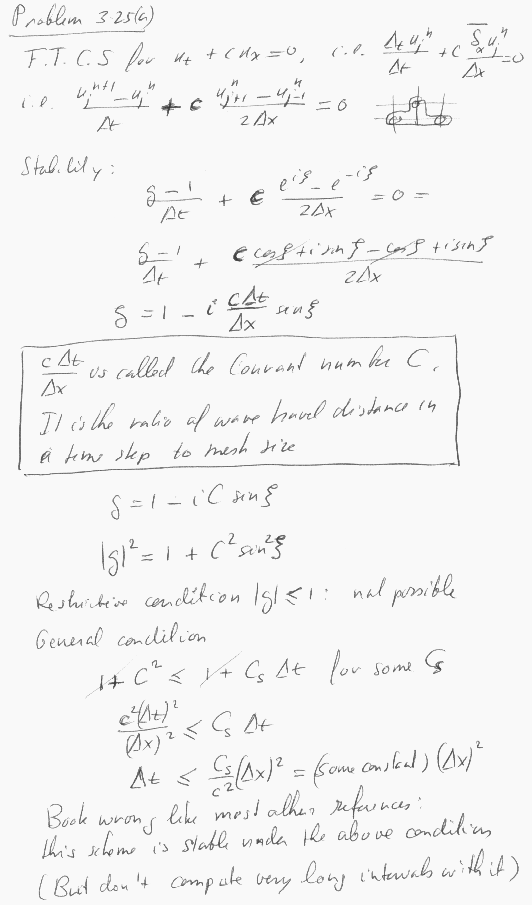 Problem 3.25(a)
F.T.C.S for u_t + c u_x = 0, i.e. Δ_t u_j^n / Δt + c \overline{δ}_x u_j^n / Δx = 0
i.e. (u_j^{n+1} - u_j^n) / Δt + c (u_{j+1}^n - u_{j-1}^n) / 2Δx = 0
Stability:
(g - 1) / Δt + c (e^{iξ} - e^{-iξ}) / 2Δx = 0 =
(g - 1) / Δt + c (cos ξ + i sin ξ - cos ξ + i sin ξ) / 2Δx
g = 1 - i (cΔt / Δx) sin ξ
cΔt / Δx is called the Courant number C.
It is the ratio of wave travel distance in
a time step to mesh size
g = 1 - i C sin ξ
|g|² = 1 + C² sin² ξ
Restrictive condition |g| ≤ 1: not possible
General condition
1 + C² ≤ 1 + C_s Δt for some C_s
c²(Δt)² / (Δx)² ≤ C_s Δt
Δt ≤ (C_s / c²) (Δx)² = (some constant) (Δx)²
Book wrong like most other references:
this scheme is stable under the above condition
(But don't compute very long intervals with it)